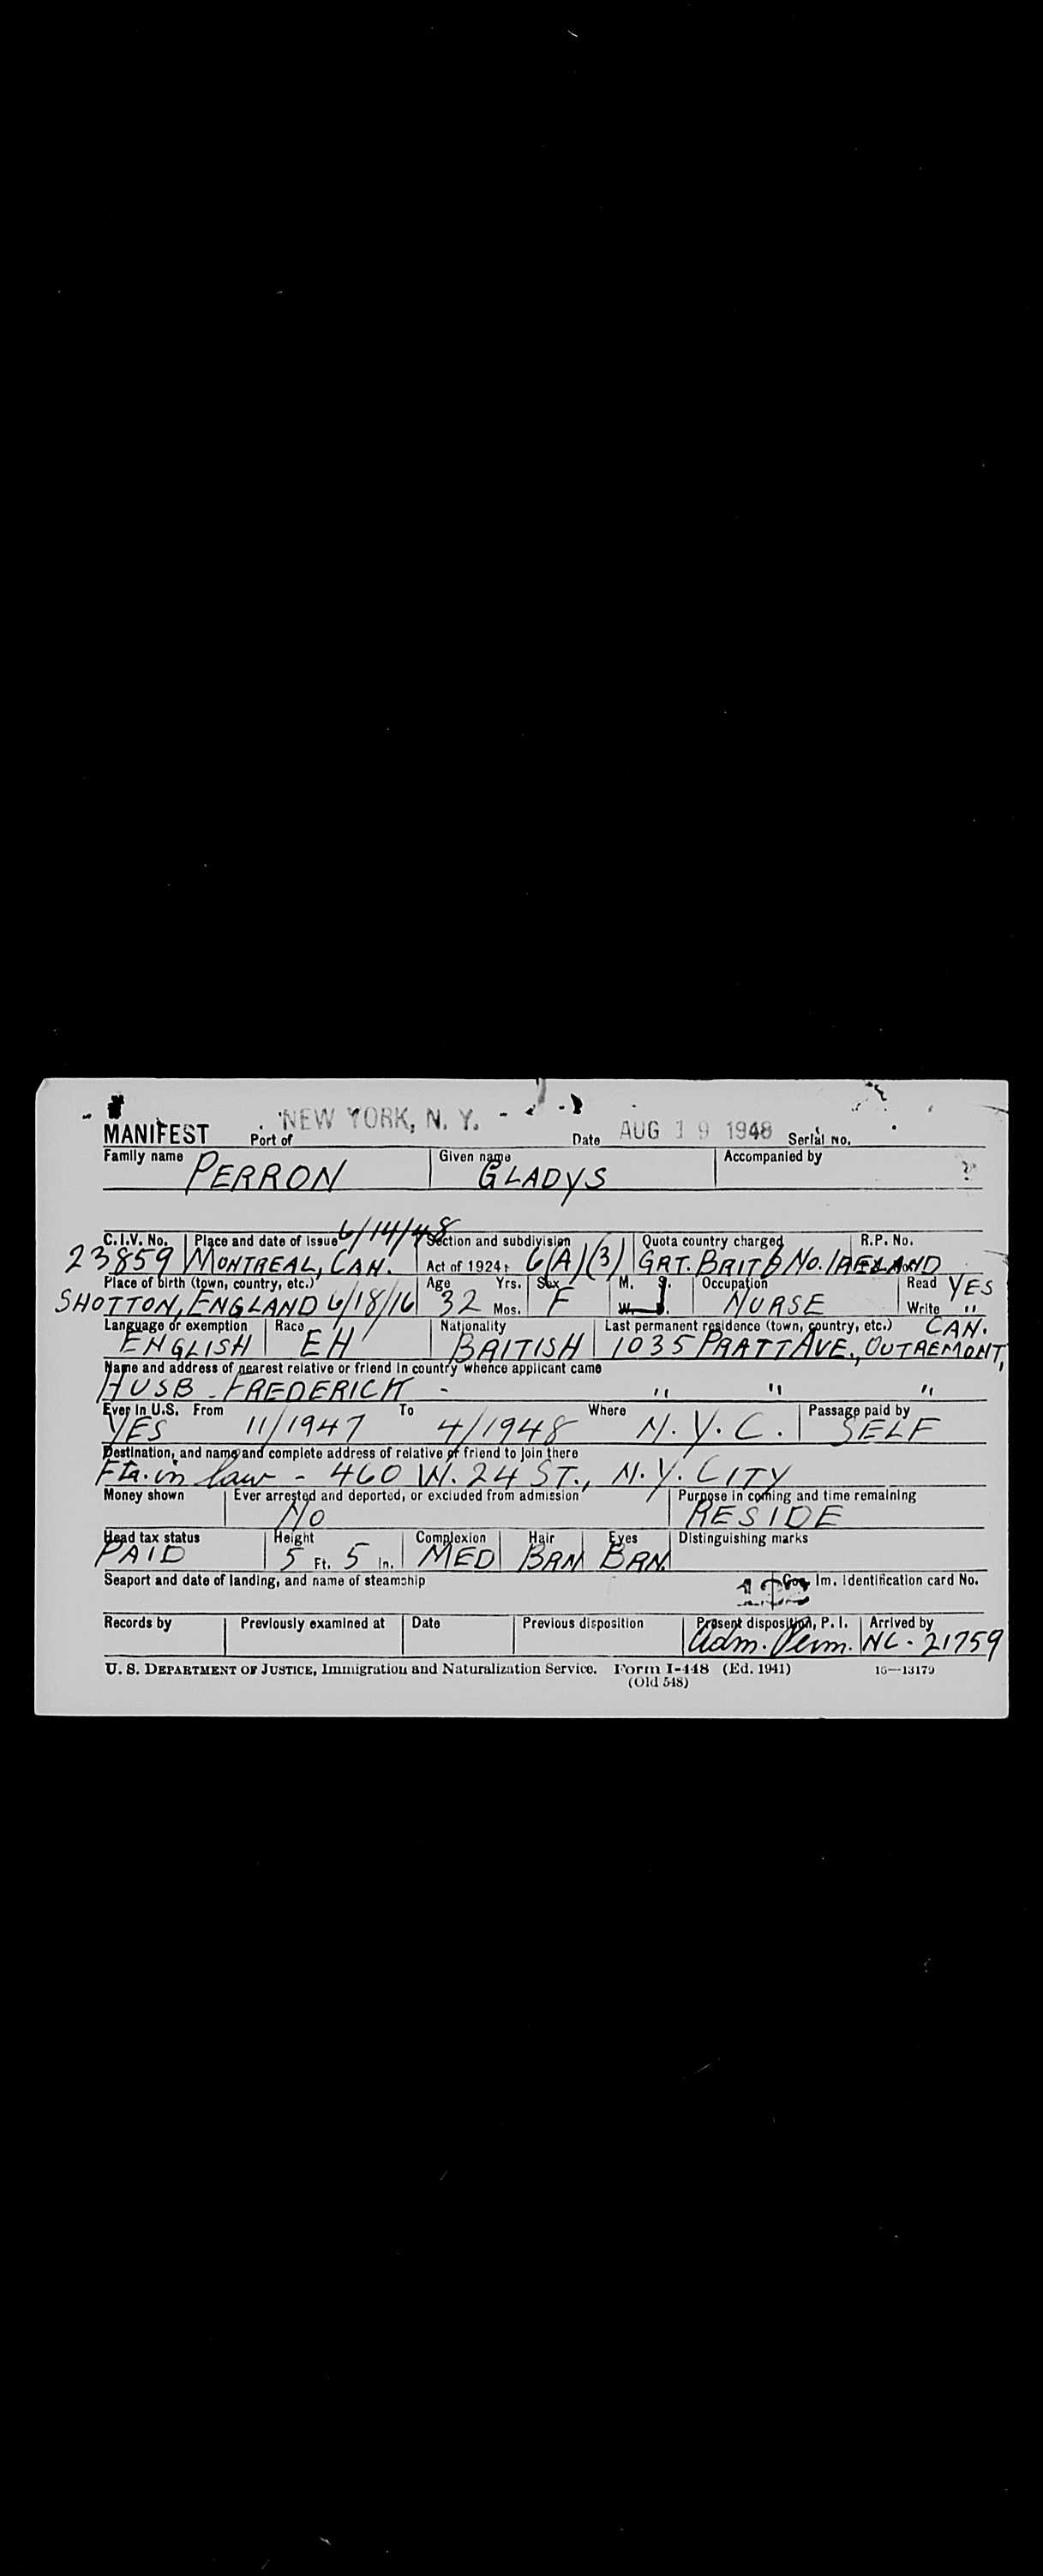 NEW YORK, N. Y.
MANIFEST Port of Date AUG 19 1948 Serial No.
Family name PERRON Given name GLADYS Accompanied by
6/14/48
C.I.V. No. Place and date of issue Section and subdivision Quota country charged R.P. No.
23859 MONTREAL, CAN. Act of 1924: 6(A)(3) GRT. BRIT & NO. IRELAND
Place of birth (town, country, etc.) Age Yrs. Sex M. S. Occupation Read YES
SHOTTON, ENGLAND 6/18/16 32 Mos. F W. NURSE Write "
Language or exemption Race Nationality Last permanent residence (town, country, etc.) CAN.
ENGLISH EH BRITISH 1035 PRATT AVE., OUTREMONT,
Name and address of nearest relative or friend in country whence applicant came
HUSB - FREDERICK - " " "
Ever in U.S. From To Where Passage paid by
YES 11/1947 4/1948 N.Y.C. SELF
Destination, and name and complete address of relative or friend to join there
Fta. in law - 460 W. 24 ST., N.Y. CITY
Money shown Ever arrested and deported, or excluded from admission Purpose in coming and time remaining
NO RESIDE
Head tax status Height Complexion Hair Eyes Distinguishing marks
PAID 5 Ft. 5 In. MED BRN BRN.
Seaport and date of landing, and name of steamship Im. Identification card No.
Records by Previously examined at Date Previous disposition Present disposition, P. I. Arrived by
Adm. Perm. NC - 21759
U. S. DEPARTMENT OF JUSTICE, Immigration and Naturalization Service. Form I-448 (Ed. 1941) 16—13179
(Old 548)